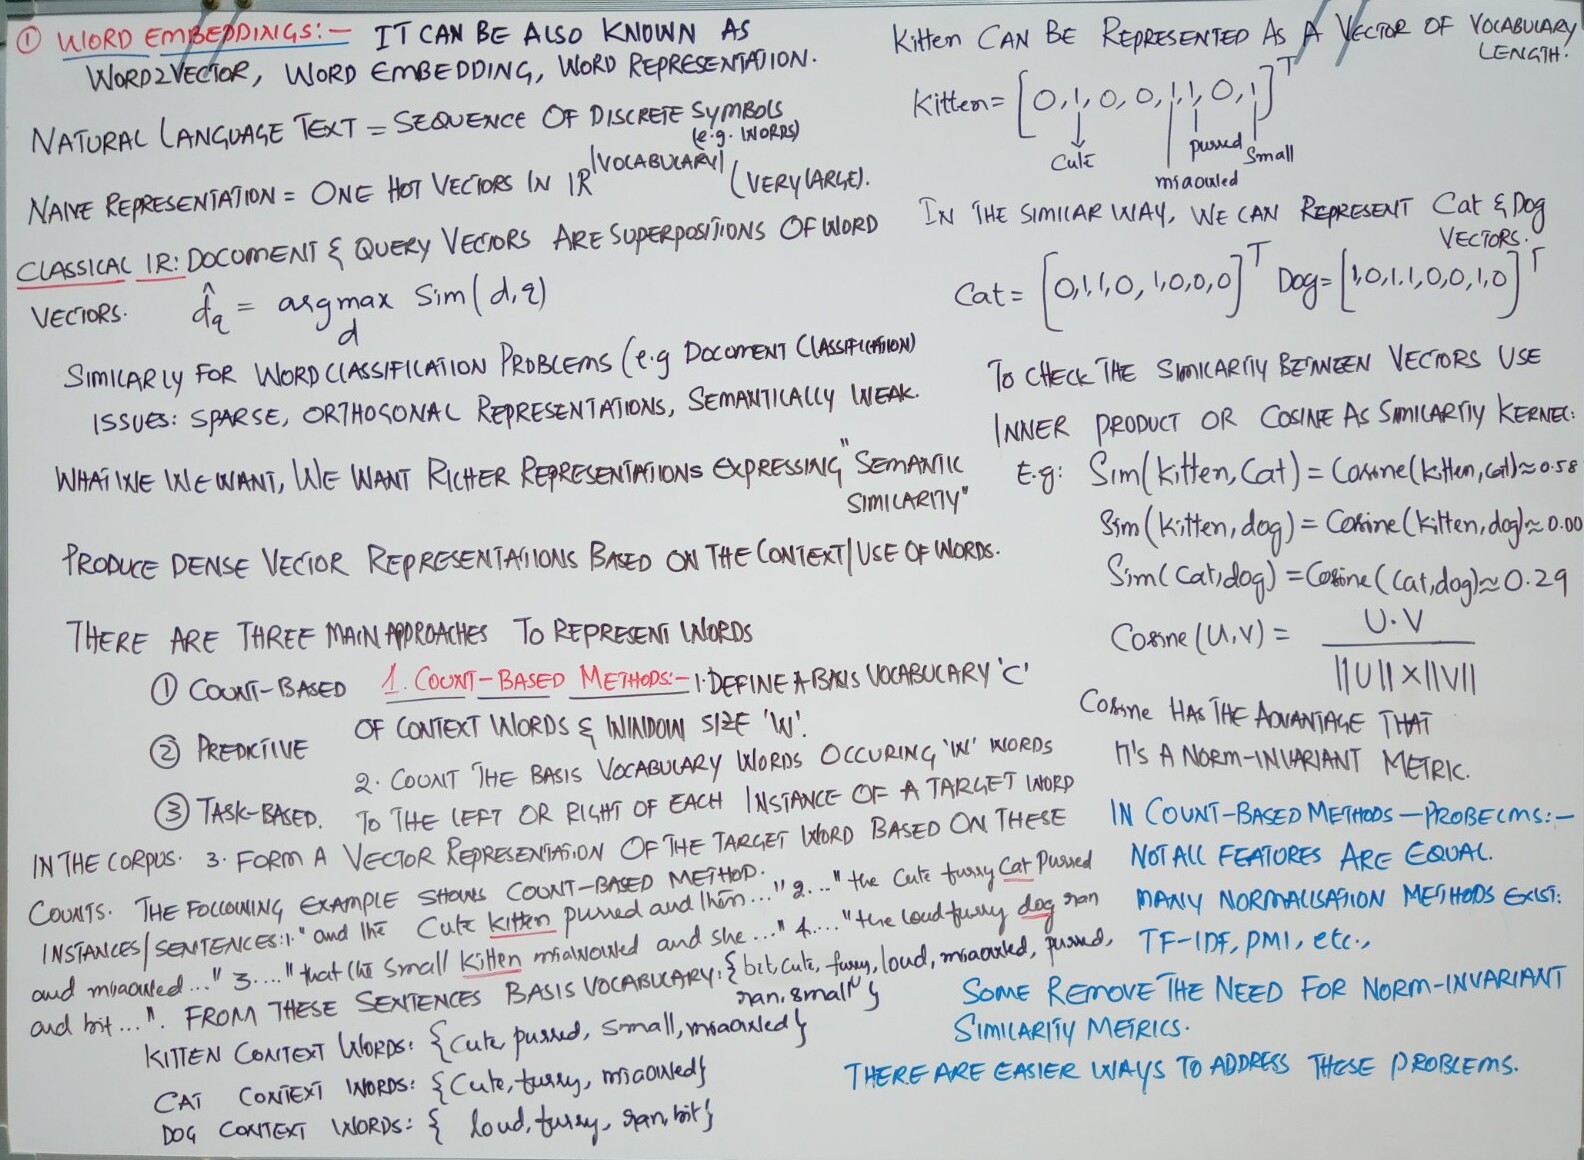 ① WORD EMBEDDINGS:— IT CAN BE ALSO KNOWN AS
WORD2VECTOR, WORD EMBEDDING, WORD REPRESENTATION.
NATURAL LANGUAGE TEXT = SEQUENCE OF DISCRETE SYMBOLS
(e.g. WORDS)
NAIVE REPRESENTATION = ONE HOT VECTORS IN IR^|VOCABULARY| (VERY LARGE).
CLASSICAL IR: DOCUMENT & QUERY VECTORS ARE SUPERPOSITIONS OF WORD
VECTORS. d̂q = argmax Sim(d,q)
d
SIMILARLY FOR WORD CLASSIFICATION PROBLEMS (e.g DOCUMENT CLASSIFICATION)
ISSUES: SPARSE, ORTHOGONAL REPRESENTATIONS, SEMANTICALLY WEAK.
WHAT WE WE WANT, WE WANT RICHER REPRESENTATIONS EXPRESSING "SEMANTIC
SIMILARITY"
PRODUCE DENSE VECTOR REPRESENTATIONS BASED ON THE CONTEXT/USE OF WORDS.
THERE ARE THREE MAIN APPROACHES TO REPRESENT WORDS
① COUNT-BASED
② PREDICTIVE
③ TASK-BASED.
1. COUNT-BASED METHODS:- 1. DEFINE A BASIS VOCABULARY 'C'
OF CONTEXT WORDS & WINDOW SIZE 'W'.
2. COUNT THE BASIS VOCABULARY WORDS OCCURING 'W' WORDS
TO THE LEFT OR RIGHT OF EACH INSTANCE OF A TARGET WORD
IN THE CORPUS. 3. FORM A VECTOR REPRESENTATION OF THE TARGET WORD BASED ON THESE
COUNTS. THE FOLLOWING EXAMPLE SHOWS COUNT-BASED METHOD.
INSTANCES/SENTENCES: 1. "and the Cute kitten purred and then..." 2. ..." the Cute furry Cat purred
and miaowed..." 3. ...." that the Small kitten miaowed and she ..." 4. ...." the loud furry dog ran
and bit ...". FROM THESE SENTENCES BASIS VOCABULARY: {bit, cute, furry, loud, miaowed, purred,
ran, small}
KITTEN CONTEXT WORDS: {Cute, purred, Small, miaowed}
CAT CONTEXT WORDS: {Cute, furry, miaowed}
DOG CONTEXT WORDS: { loud, furry, ran, bit}
Kitten CAN BE REPRESENTED AS A VECTOR OF VOCABULARY
LENGTH.
Kitten = [0,1,0,0,1,1,0,1]^T
Cute
miaowed
purred
Small
IN THE SIMILAR WAY, WE CAN REPRESENT Cat & Dog
VECTORS.
Cat = [0,1,1,0,1,0,0,0]^T Dog = [1,0,1,1,0,0,1,0]^T
TO CHECK THE SIMILARTIY BETWEEN VECTORS USE
INNER PRODUCT OR COSINE AS SIMILARTIY KERNEL:
E.g: Sim(kitten, Cat) = Cosine(kitten, cat) ≈ 0.58
Sim(kitten, dog) = Cosine(kitten, dog) ≈ 0.00
Sim(Cat, dog) = Cosine(cat, dog) ≈ 0.29
Cosine(U,V) = U·V
||U|| × ||V||
Cosine HAS THE ADVANTAGE THAT
IT'S A NORM-INVARIANT METRIC.
IN COUNT-BASED METHODS — PROBELMS:—
NOT ALL FEATURES ARE EQUAL.
MANY NORMALISATION METHODS EXIST:
TF-IDF, PMI, etc.,
SOME REMOVE THE NEED FOR NORM-INVARIANT
SIMILARITY METRICS.
THERE ARE EASIER WAYS TO ADDRESS THESE PROBLEMS.